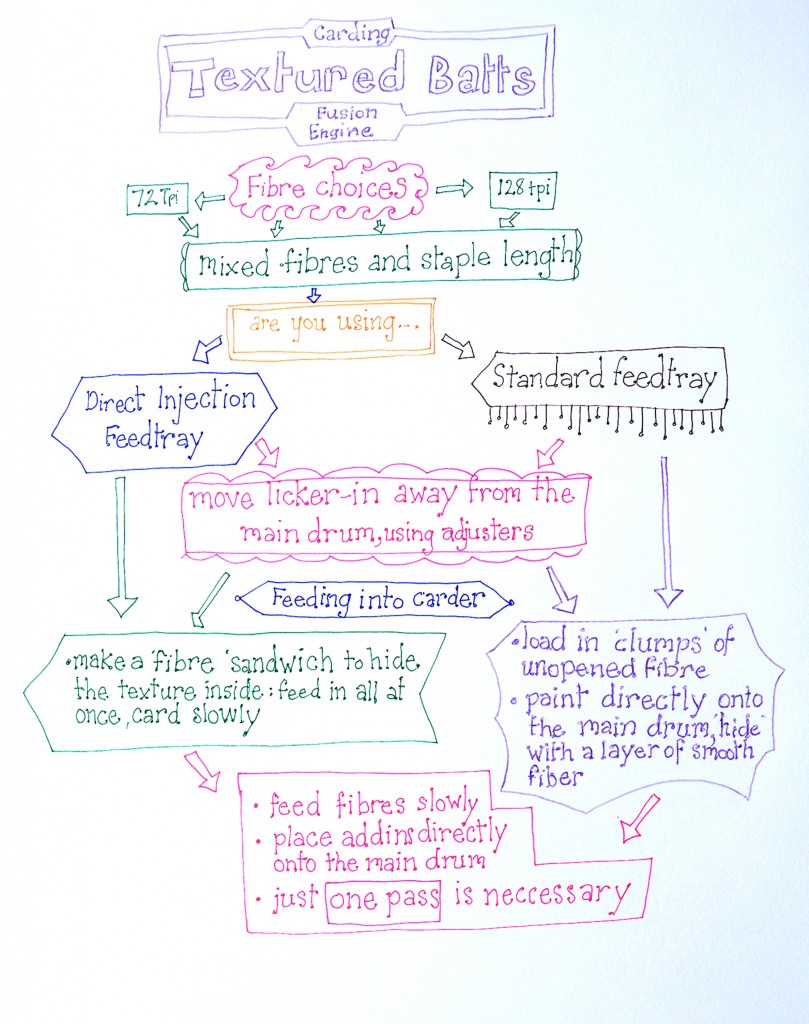 Carding
Textured Batts
Fusion
Engine
Fibre choices
72Tpi
128tpi
mixed fibres and staple length
are you using...
Direct Injection
Feedtray
Standard feedtray
move licker-in away from the
main drum, using adjusters
Feeding into carder
• make a 'fibre 'sandwich to hide
the texture inside: feed in all at
once, card slowly
• load in 'clumps' of
unopened fibre
• paint directly onto
the main drum, 'hide'
with a layer of smooth
fiber
• feed fibres slowly
• place addins directly
onto the main drum
• just one pass is neccessary